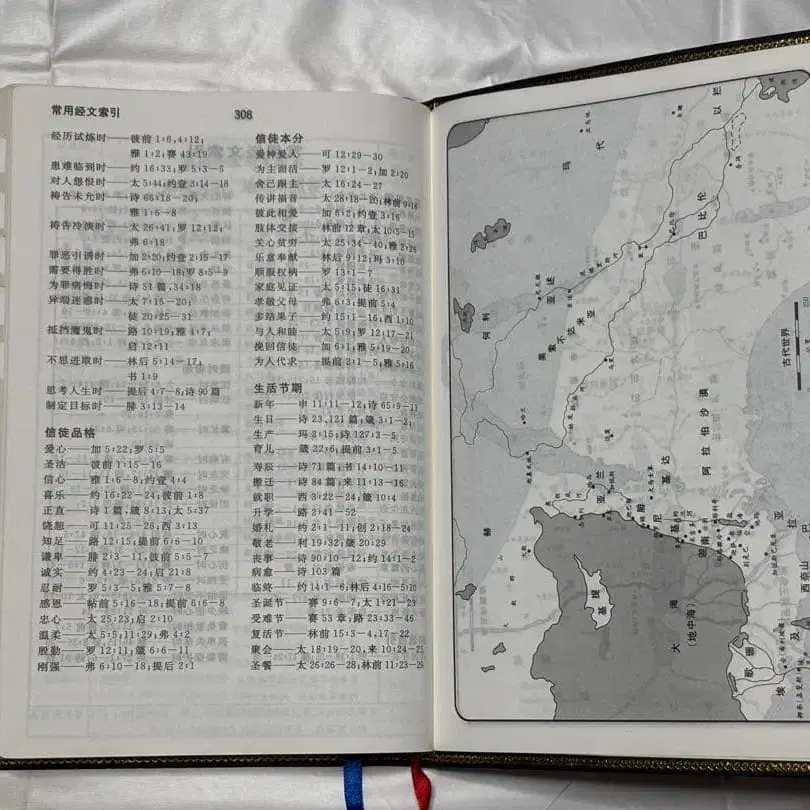 常用经文索引
308
经历试炼时——彼前 1:6,4:12;
雅 1:2;赛 43:19
患难临到时——约 16:33;罗 5:3-5
对人怨恨时——太 5:44;约壹 3:14-18
祷告未允时——诗 66:18-20;
雅 1:6-8
祷告冷淡时——太 26:41;罗 12:12;
弗 6:18
罪恶引诱时——加 2:20;约壹 2:15-17
需要得胜时——弗 6:10-18;罗 8:5-9
为罪痛悔时——诗 51 篇,34:18
异端迷惑时——太 7:15-20;
徒 20:25-31
抵挡魔鬼时——路 10:19;雅 4:7;
启 12:11
不思进取时——林后 5:14-17;
书 1:9
思考人生时——提后 4:7-8;诗 90 篇
制定目标时——腓 3:13-14
信徒品格
爱心——加 5:22;罗 5:5
圣洁——彼前 1:15-16
信心——雅 1:6-8;约壹 4:4
喜乐——约 16:22-24;彼前 1:8
正直——诗 1 篇,箴 8:13;太 5:37
饶恕——可 11:25-26;西 3:13
知足——路 12:15;提前 6:6-10
谦卑——腓 2:3-11;彼前 5:5-7
诚实——约 4:23-24;启 21:8
忍耐——罗 5:3-5;雅 5:7-8
感恩——帖前 5:16-18;提前 6:6-8
忠心——太 25:23;启 2:10
温柔——太 5:5,11:29;弗 4:2
殷勤——罗 12:11;箴 6:6-11
刚强——弗 6:10-18;提后 2:1
信徒本分
爱神爱人——可 12:29-30
为主而活——罗 12:1-2;加 2:20
舍己跟主——太 16:24-27
传讲福音——太 28:18-20;林前 9:16
彼此相爱——加 6:2;约壹 3:16
肢体交接——林前 12 章;太 10:5-15
关心贫穷——太 25:34-40;雅 2:26
乐意奉献——林后 9:12;玛 3:10
顺服权柄——罗 13:1-7
家庭见证——太 5:15;徒 16:31
孝敬父母——弗 6:3;提前 5:4
多结果子——约 15:1-16;西 1:10
与人和睦——太 5:9;罗 12:17-21
挽回信徒——加 6:1;雅 5:19-20
为人代求——提前 2:1-5;雅 5:16
生活节期
新年——申 11:11-12;诗 65:9-11
生日——诗 23,121 篇;箴 3:1-2;
生产——玛 2:15;诗 127:3-5
育儿——箴 22:6;提前 3:1-5
寿辰——诗 71 篇;书 14:10-11
搬迁——诗 84 篇;来 11:13-16
就职——西 3:22-24;箴 10:4
升学——路 2:41-52
婚礼——约 2:1-11;创 2:18-24
敬老——利 19:32;箴 20:29
丧事——诗 90:10-12;约 14:1-2
病愈——诗 103 篇
临终——约 14:1-6;林后 4:16-5:10
圣诞节——赛 9:6-7;太 1:21-23
受难节——赛 53 章;路 23:33-46
复活节——林前 15:3-4,17-22
聚会——太 18:19-20,来 10:24-25
圣餐——太 26:26-28;林前 11:23-29
古代世界
玛代
以拦
巴比伦
亚述
美索不达米亚
阿拉伯沙漠
亚兰
腓尼基
迦南
基达
大海
(地中海)
基提
西奈山
赫
何利